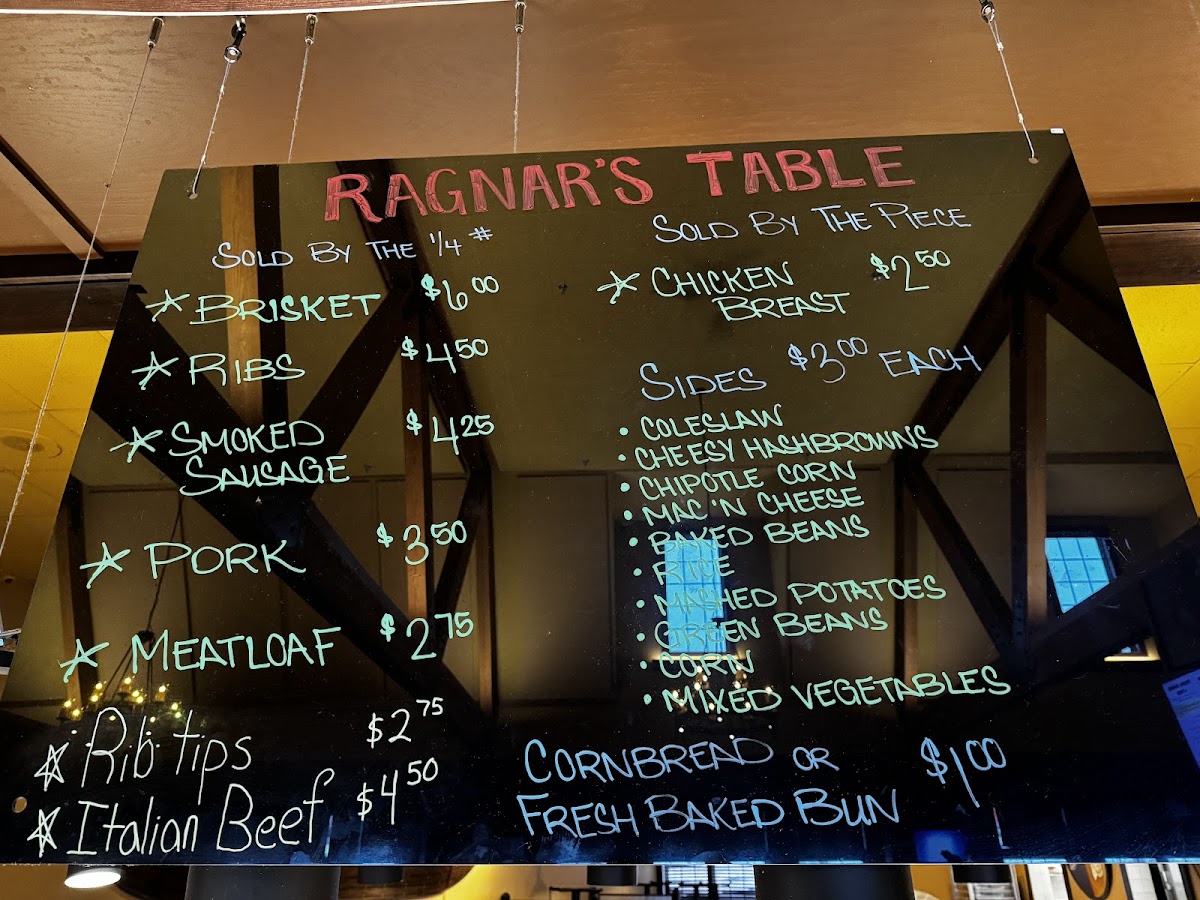 RAGNAR'S TABLE
SOLD BY THE 1/4 #
☆ BRISKET $6.00
☆ RIBS $4.50
☆ SMOKED $4.25
SAUSAGE
☆ PORK $3.50
☆ MEATLOAF $2.75
☆ Rib tips $2.75
☆ Italian Beef $4.50
SOLD BY THE PIECE
☆ CHICKEN $2.50
BREAST
SIDES $3.00 EACH
• COLESLAW
• CHEESY HASHBROWNS
• CHIPOTLE CORN
• MAC 'N CHEESE
• BAKED BEANS
• RICE
• MASHED POTATOES
• GREEN BEANS
• CORN
• MIXED VEGETABLES
CORNBREAD OR $1.00
FRESH BAKED BUN